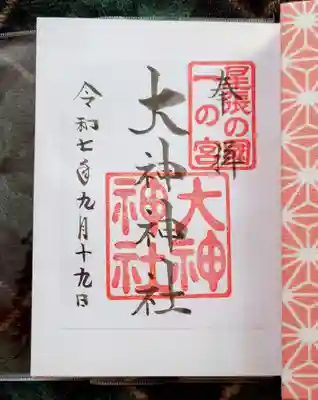 奉拝
尾張の國
一の宮
大神神社
大神
神社
令和七年九月十九日